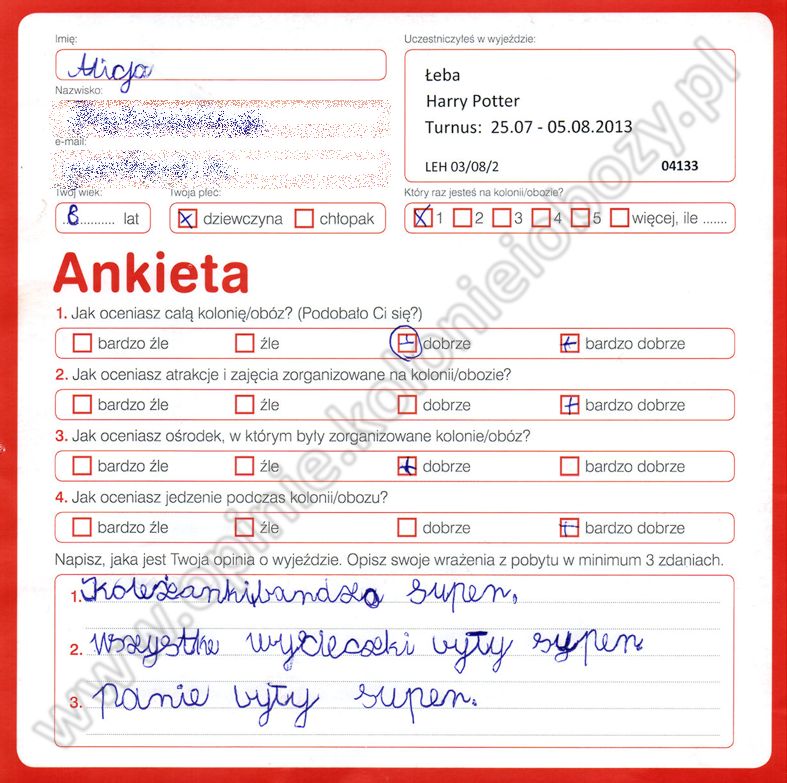 Imię:
Alicja
Nazwisko:
e-mail:
Twój wiek:
8 lat
Twoja płeć:
dziewczyna chłopak
Uczestniczyłeś w wyjeździe:
Łeba
Harry Potter
Turnus: 25.07 - 05.08.2013
LEH 03/08/2 04133
Który raz jesteś na kolonii/obozie?
1 2 3 4 5 więcej, ile .......
Ankieta
1. Jak oceniasz całą kolonię/obóz? (Podobało Ci się?)
bardzo źle źle dobrze bardzo dobrze
2. Jak oceniasz atrakcje i zajęcia zorganizowane na kolonii/obozie?
bardzo źle źle dobrze bardzo dobrze
3. Jak oceniasz ośrodek, w którym były zorganizowane kolonie/obóz?
bardzo źle źle dobrze bardzo dobrze
4. Jak oceniasz jedzenie podczas kolonii/obozu?
bardzo źle źle dobrze bardzo dobrze
Napisz, jaka jest Twoja opinia o wyjeździe. Opisz swoje wrażenia z pobytu w minimum 3 zdaniach.
1. Koleżanki bardzo super.
2. wszystke wycieczki vyły super
3. panie vyły super.
www.opinie.kolonieiobozy.pl